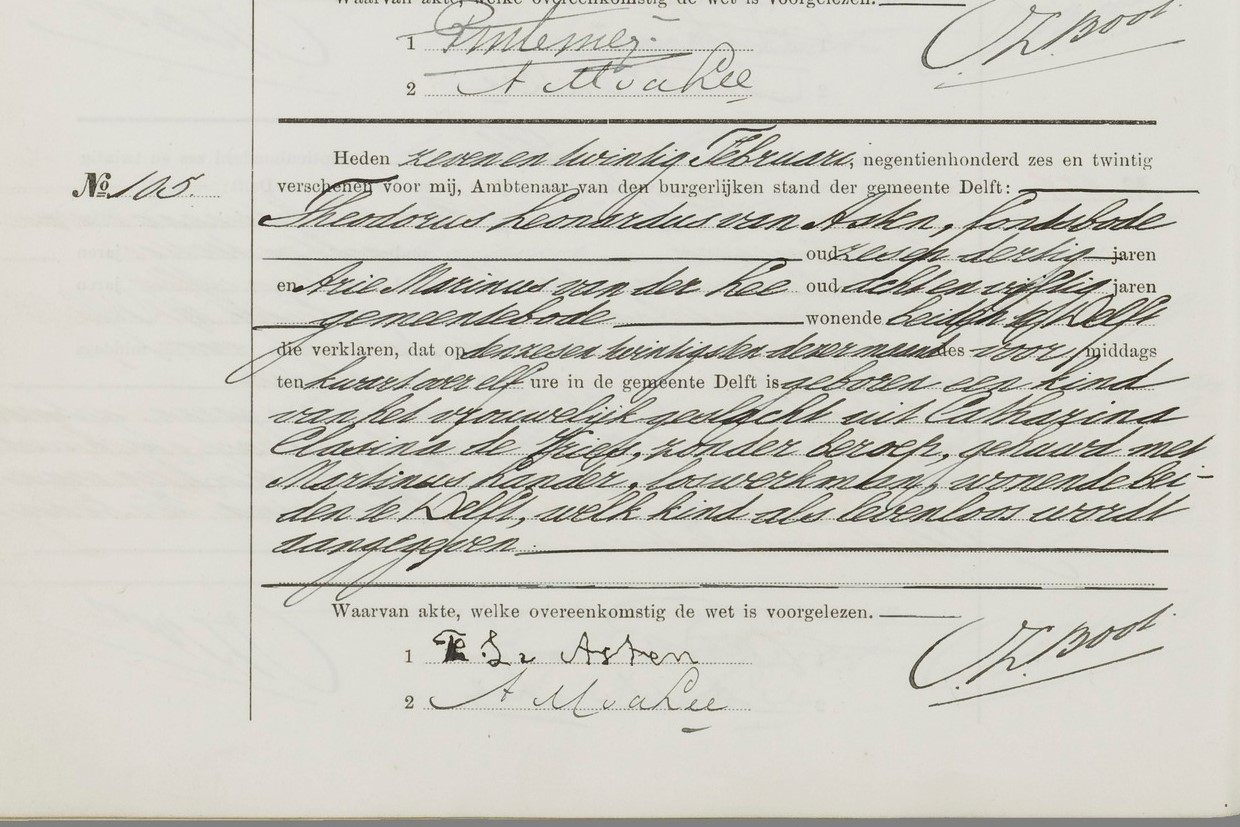 Waarvan akte, welke overeenkomstig de wet is voorgelezen.
1
2 A M vd Lee
Heden zeven en twintig Februari, negentienhonderd zes en twintig
No 105 verschenen voor mij, Ambtenaar van den burgerlijken stand der gemeente Delft:
Theodorus Leonardus van Asten, fondsbode
oud zes en dertig jaren
en Arie Marinus van der Lee oud acht en vijftig jaren
gemeentebode wonende beiden te Delft
die verklaren, dat op den zes en twintigsten dezer maand des voor middags
ten kwart over elf ure in de gemeente Delft is geboren een kind
van het vrouwelijk geslacht uit Catharina
Clasina de Vries, zonder beroep, gehuwd met
Martinus Kander, los werkman, wonende bei-
den te Delft, welk kind als levenloos wordt
aangegeven.
Waarvan akte, welke overeenkomstig de wet is voorgelezen.
1 T L v Asten
2 A M vd Lee